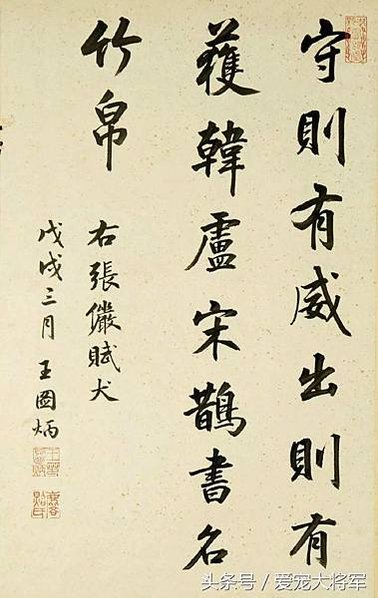 守則有威出則有
獲韓盧宋鵲書名
竹帛
右張儼賦犬
戊戌三月王國炳
头条号 / 爱宠大将军